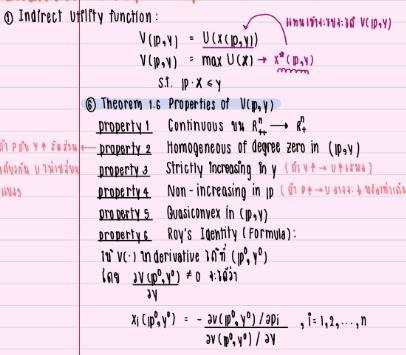 ① Indirect Utility function :
แทนเข้าจะจะได้ V(p,y)
V(p,y) = U(x(p,y))
V(p,y) = max U(x) → x*(p,y)
s.t. p·x ≤ y
⑥ Theorem 1.6 Properties of V(p,y)
property 1 Continuous บน Rⁿ₊₊ → Rⁿ₊
property 2 Homogeneous of degree zero in (p,y)
property 3 Strictly Increasing in y
property 4 Non-increasing in p
property 5 Quasiconvex in (p,y)
property 6 Roy's Identity (Formula) :
ให้ V(·) หา derivative ได้ที่ (p⁰, y⁰)
โดย ∂V(p⁰, y⁰)/∂y ≠ 0 จะได้ว่า
xi(p⁰, y⁰) = - ∂V(p⁰, y⁰)/∂pi / ∂V(p⁰, y⁰)/∂y , i = 1, 2, ..., n